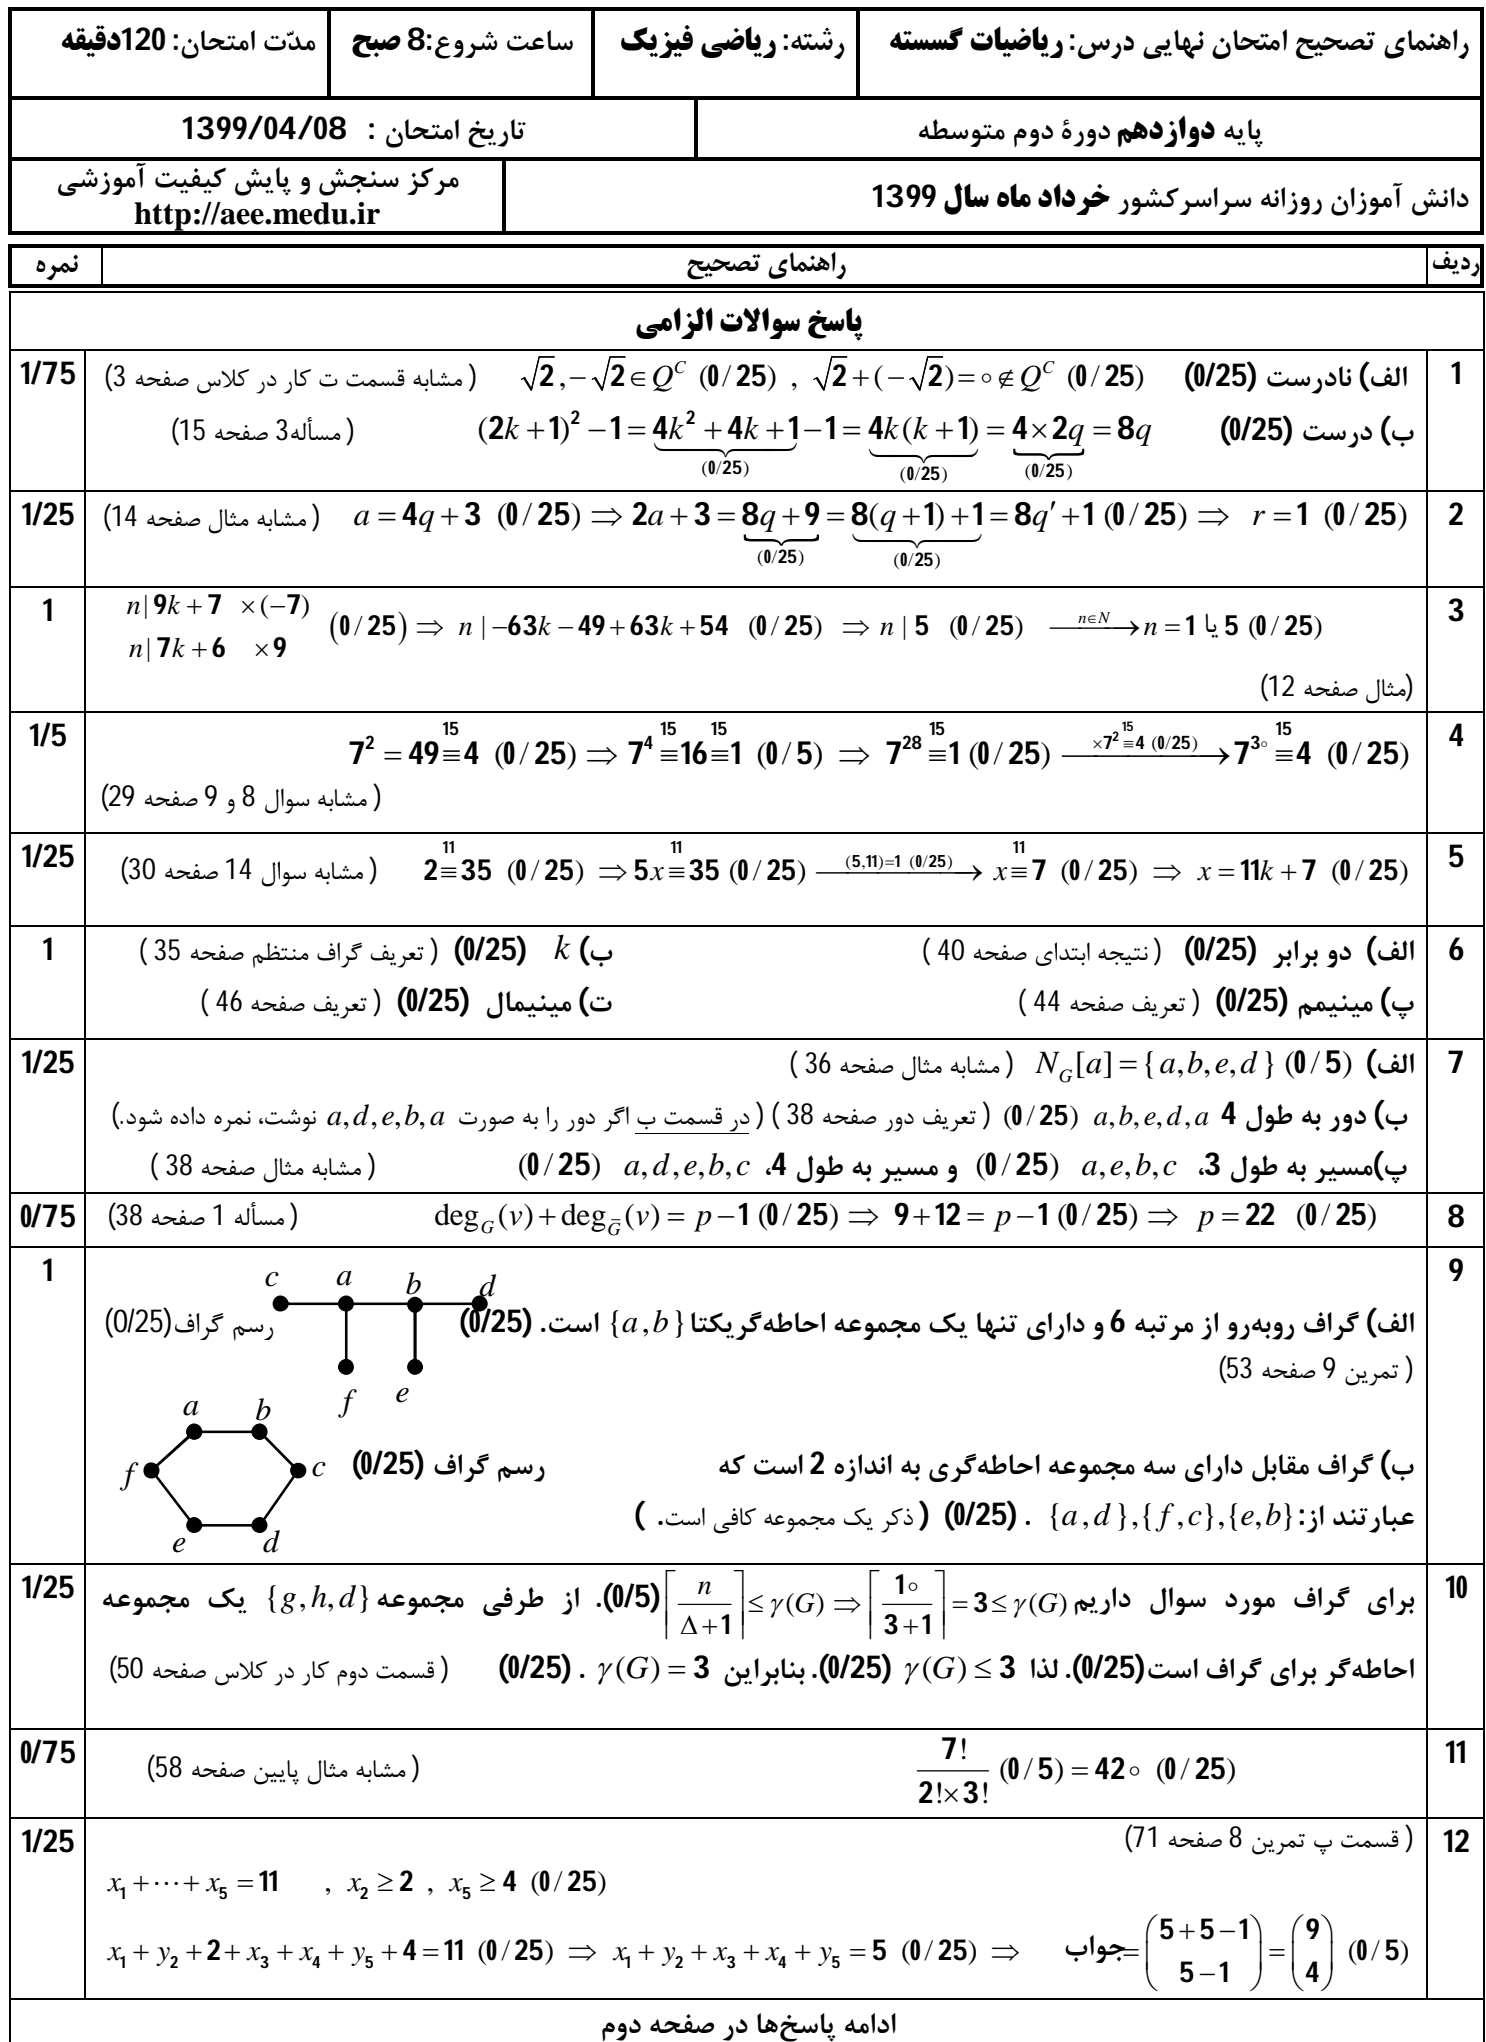 راهنمای تصحیح امتحان نهایی درس: ریاضیات گسسته | رشته: ریاضی فیزیک | ساعت شروع:8 صبح | مدّت امتحان: 120دقیقه
پایه دوازدهم دورهٔ دوم متوسطه | تاریخ امتحان : 1399/04/08
دانش آموزان روزانه سراسرکشور خرداد ماه سال 1399 | مرکز سنجش و پایش کیفیت آموزشی
http://aee.medu.ir
ردیف | راهنمای تصحیح | نمره
پاسخ سوالات الزامی
1 | الف) نادرست (0/25) √2 , −√2 ∈ Q^C (0/25) , √2 + (−√2) = ∘ ∉ Q^C (0/25) ( مشابه قسمت ت کار در کلاس صفحه 3) | 1/75
ب) درست (0/25) (2k+1)² − 1 = 4k² + 4k + 1 − 1 = 4k(k+1) = 4×2q = 8q ( مسأله3 صفحه 15)
(0/25) (0/25) (0/25)
2 | a = 4q + 3 (0/25) ⇒ 2a + 3 = 8q + 9 = 8(q+1) + 1 = 8q′ + 1 (0/25) ⇒ r = 1 (0/25) ( مشابه مثال صفحه 14) | 1/25
(0/25) (0/25)
3 | n | 9k + 7 ×(−7) | 1
n | 7k + 6 ×9 (0/25) ⇒ n | −63k − 49 + 63k + 54 (0/25) ⇒ n | 5 (0/25) —n∈N→ n = 1 یا 5 (0/25)
(مثال صفحه 12)
4 | 7² = 49 ≡¹⁵ 4 (0/25) ⇒ 7⁴ ≡¹⁵ 16 ≡¹⁵ 1 (0/5) ⇒ 7²⁸ ≡¹⁵ 1 (0/25) —×7² ≡¹⁵ 4 (0/25)→ 7³∘ ≡¹⁵ 4 (0/25) | 1/5
( مشابه سوال 8 و 9 صفحه 29)
5 | 2 ≡¹¹ 35 (0/25) ⇒ 5x ≡¹¹ 35 (0/25) —(5,11)=1 (0/25)→ x ≡¹¹ 7 (0/25) ⇒ x = 11k + 7 (0/25) ( مشابه سوال 14 صفحه 30) | 1/25
6 | الف) دو برابر (0/25) ( نتیجه ابتدای صفحه 40 ) ب) k (0/25) ( تعریف گراف منتظم صفحه 35 ) | 1
پ) مینیمم (0/25) ( تعریف صفحه 44 ) ت) مینیمال (0/25) ( تعریف صفحه 46 )
7 | الف) N_G[a] = {a,b,e,d} (0/5) ( مشابه مثال صفحه 36 ) | 1/25
ب) دور به طول 4 a,b,e,d,a (0/25) ( تعریف دور صفحه 38 ) ( در قسمت ب اگر دور را به صورت a,d,e,b,a نوشت، نمره داده شود.)
پ)مسیر به طول 3، a,e,b,c (0/25) و مسیر به طول 4، a,d,e,b,c (0/25) ( مشابه مثال صفحه 38 )
8 | deg_G(v) + deg_Ḡ(v) = p − 1 (0/25) ⇒ 9 + 12 = p − 1 (0/25) ⇒ p = 22 (0/25) ( مسأله 1 صفحه 38) | 0/75
9 | c a b d | 1
الف) گراف روبه‌رو از مرتبه 6 و دارای تنها یک مجموعه احاطه‌گریکتا {a,b} است. (0/25) رسم گراف(0/25)
( تمرین 9 صفحه 53)
f e
a b
ب) گراف مقابل دارای سه مجموعه احاطه‌گری به اندازه 2 است که رسم گراف (0/25) c f
عبارتند از: {a,d},{f,c},{e,b} . (0/25) ( ذکر یک مجموعه کافی است. )
e d
10 | برای گراف مورد سوال داریم ⌈n/(Δ+1)⌉ ≤ γ(G) ⇒ ⌈1∘/(3+1)⌉ = 3 ≤ γ(G) (0/5). از طرفی مجموعه {g,h,d} یک مجموعه | 1/25
احاطه‌گر برای گراف است(0/25). لذا γ(G) ≤ 3 (0/25). بنابراین γ(G) = 3 . (0/25) ( قسمت دوم کار در کلاس صفحه 50)
11 | 7!/(2!×3!) (0/5) = 42∘ (0/25) ( مشابه مثال پایین صفحه 58) | 0/75
12 | ( قسمت پ تمرین 8 صفحه 71) | 1/25
x₁ + ⋯ + x₅ = 11 , x₂ ≥ 2 , x₅ ≥ 4 (0/25)
x₁ + y₂ + 2 + x₃ + x₄ + y₅ + 4 = 11 (0/25) ⇒ x₁ + y₂ + x₃ + x₄ + y₅ = 5 (0/25) ⇒ جواب = (5+5−1 / 5−1) = (9 / 4) (0/5)
ادامه پاسخ‌ها در صفحه دوم